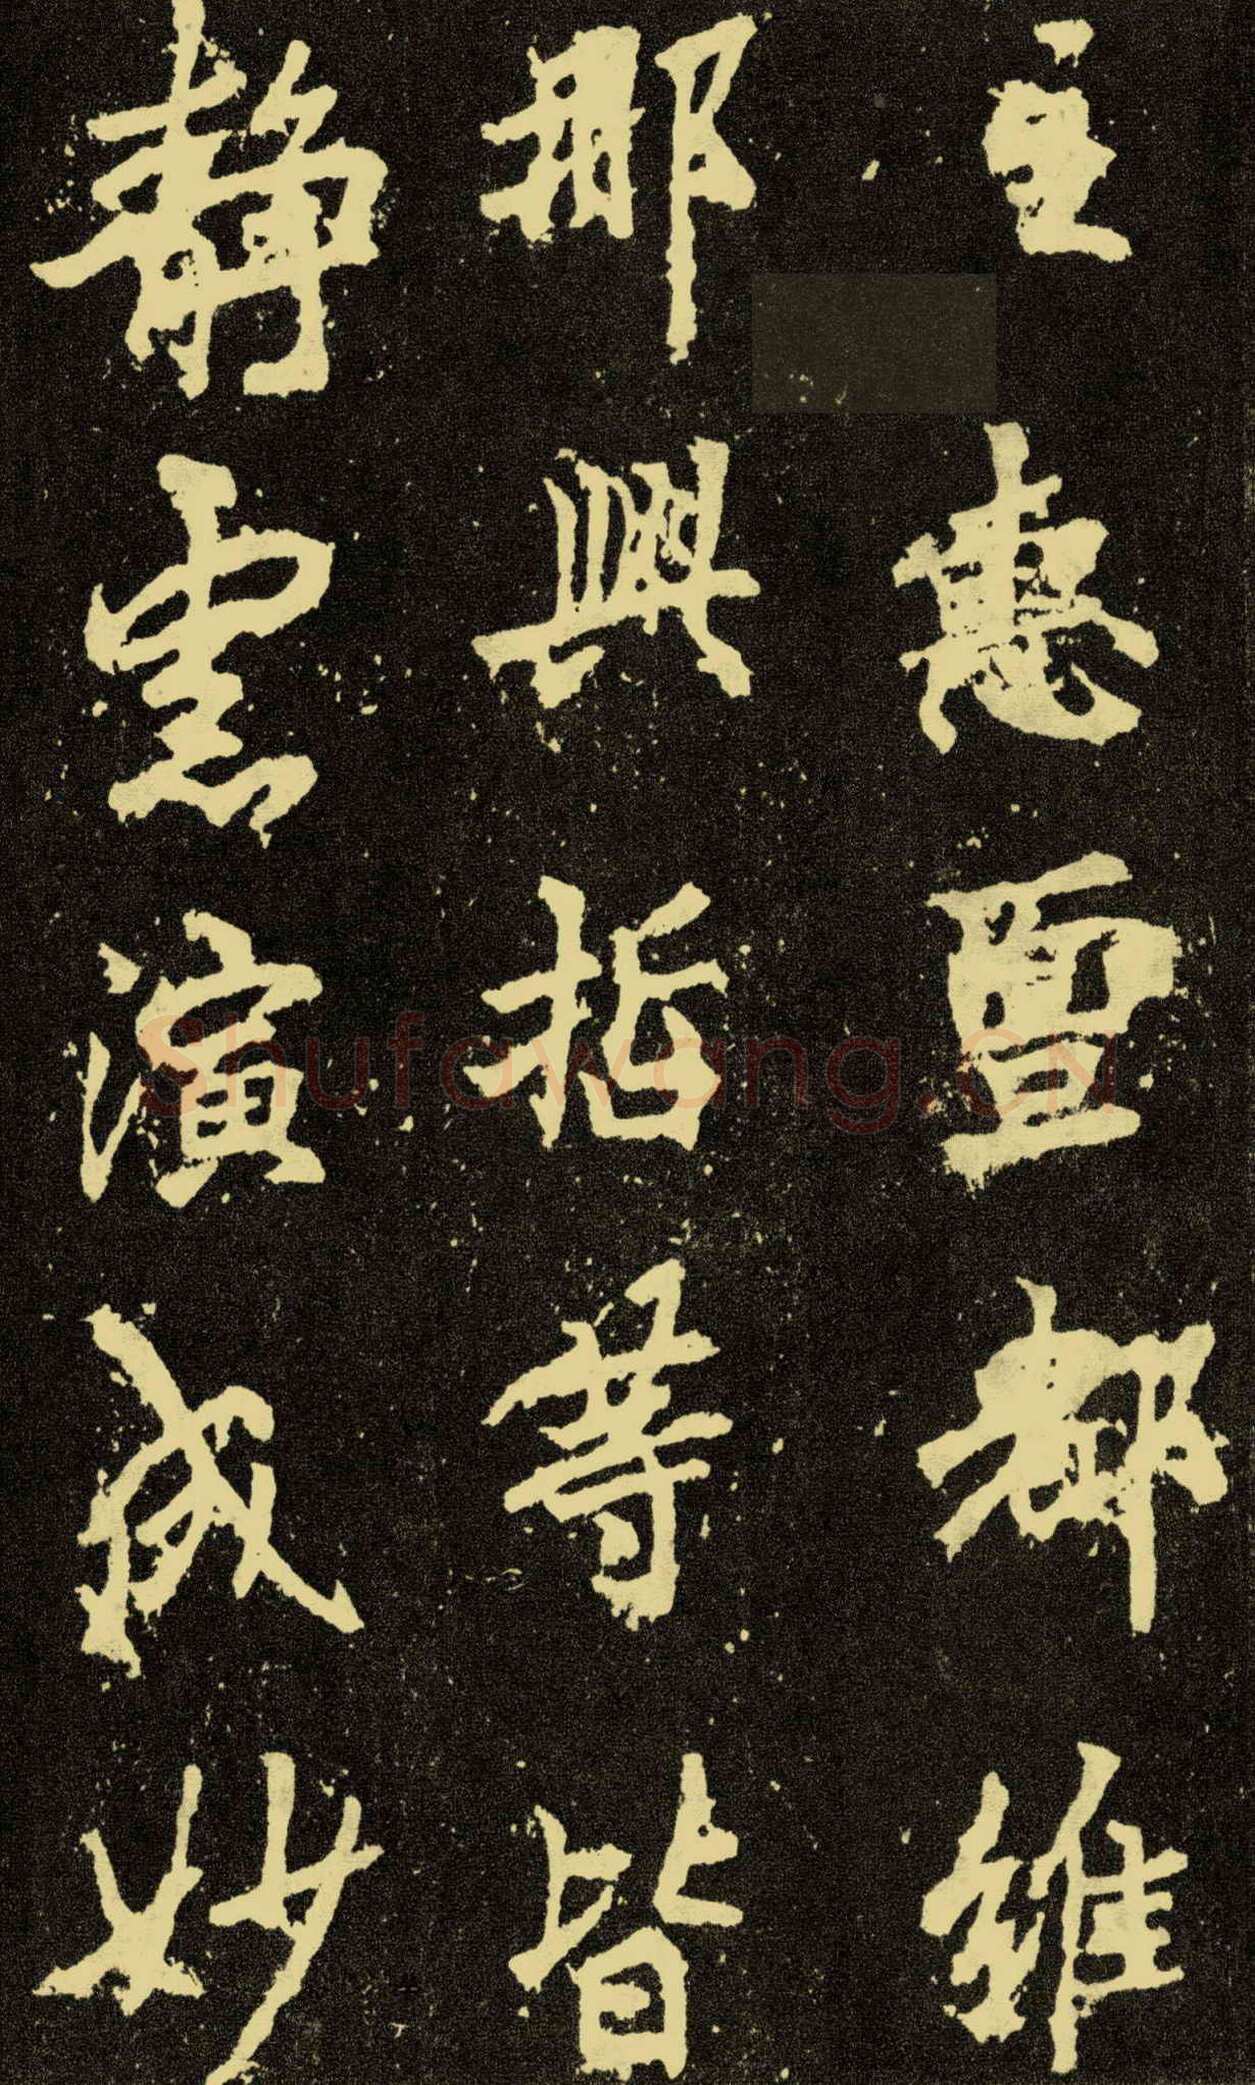 主惠亶都維
那興哲等皆
靜慮演成妙
Shufawang.CN